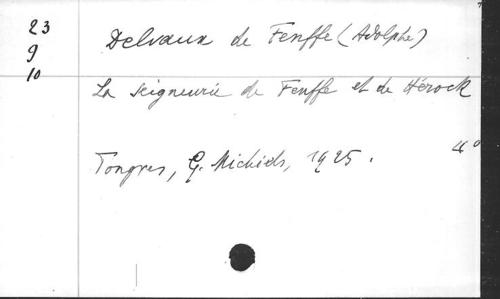 23
9
10
Delvaux de Fenffe (Adolphe)
La seigneurie de Fenffe et de Hérock
Tongres, G. Michiels, 1925.
4°